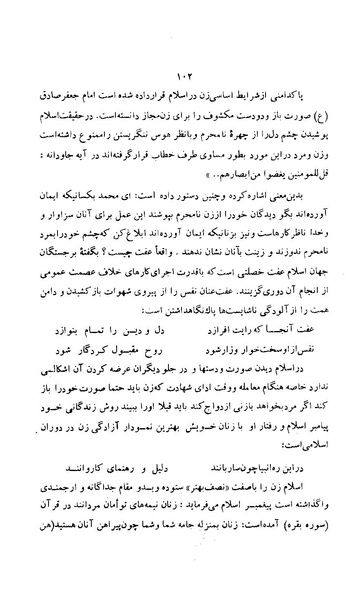 ۱۰۲
پاکدامنی ازشرایط اساسی‌زن دراسلام قرارداده شده است امام جعفرصادق
(ع) صورت باز ودودست مکشوف را برای زن‌مجاز دانسته‌است. درحقیقت‌اسلام
پوشیدن چشم دل‌را از چهرهٔ نامحرم وبانظر هوس ننگریستن راممنوع داشته‌است
وزن ومرد دراین مورد بطور مساوی طرف خطاب قرارگرفته‌اند در آیه جاودانه :
قل‌للمومنین یغضوا من‌ابصارهم.. »
بدین‌معنی اشاره کرده وچنین دستور داده است: ای محمد بکسانیکه ایمان
آورده‌اند بگو دیدگان خودرا اززن نامحرم بپوشند این عمل برای آنان سزاوار و
وخدا ناظرکارهاست ونیز بزنانیکه ایمان آورده‌اند ابلاغ کن که‌چشم خودرابمرد
نامحرم ندوزند و زینت بآنان نشان ندهند . واقعاً عفت چیست ؟ بگفتهٔ برجستگان
جهان اسلام عفت خصلتی است که باقدرت اجرای‌کارهای خلاف عصمت عمومی
از انجام آن دوری‌گزینند. عفت‌عنان نفس را از پیروی شهوات بازکشیدن و دامن
همت را از آلودگی ناشایست‌ها پاك‌نگاهداشتن است:
عفت آنجا که رایت افرازد دل و دین را تمام بنوازد
نفس‌ازاوسخت‌خوار وزارشود روح مقبول کردگار شود
دراسلام دیدن صورت ودستها و در جلو دیگران عرضه کردن آن اشکالی
ندارد خاصه هنگام معامله ووقت ادای شهادت که‌زن باید حتما صورت خودرا باز
کند اگر مردبخواهد بازنی ازدواج‌کند باید قبلا اورا ببیند روش زندگانی خود
پیامبر اسلام و رفتار او با زنان خویش بهترین نمودار آزادگی زن در دوران
اسلامی‌است:
دراین ره‌انبیاچون‌ساربانند دلیل و رهنمای کاروانند
اسلام زن را باصفت «نصف‌بهتر» ستوده وبدو مقام جداگانه و ارجمندی
واگذاشته است پیغمبر اسلام می‌فرماید : زنان نیمه‌های توأمان مردانند در قرآن
(سوره بقره) آمده‌است: زنان بمنزله جامه شما وشما چون‌پیراهن آنان هستید(هن